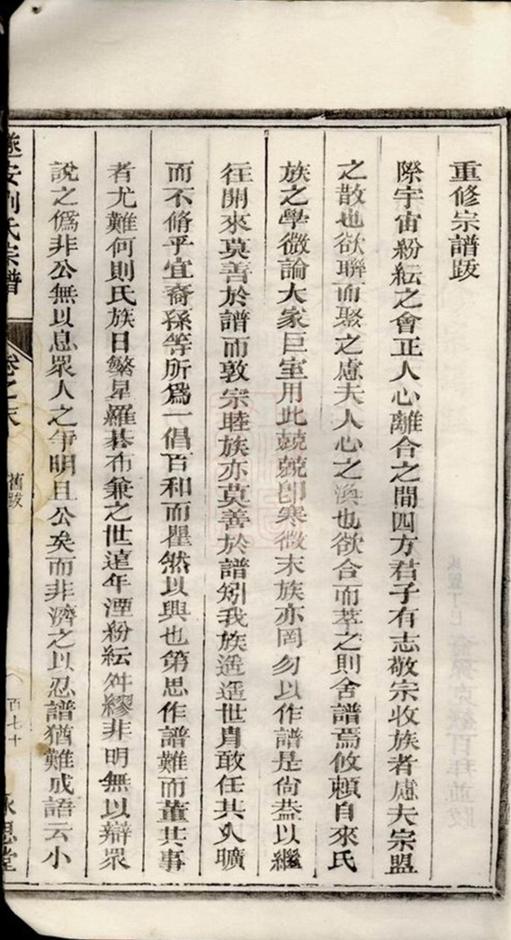 重修宗譜䟦
際宇宙紛紜之會正人心離合之間四方君子有志敬宗收族者慮夫宗盟
之散也欲聯而聚之慮夫人心之渙也欲合而萃之則舍譜焉攸賴自來氏
族之學微論大家巨室用此兢兢卽寒微末族亦罔勿以作譜是尙葢以繼
往開來莫善於譜而敦宗睦族亦莫善於譜矧我族遥遥世胄敢任其久曠
而不脩乎宜裔孫等所爲一倡百和而瞿然以興也第思作譜難而董其事
者尤難何則氏族日繁星羅棊布兼之世遠年湮紛紜舛繆非明無以辯眾
說之僞非公無以息眾人之爭明且公矣而非濟之以忍譜猶難成語云小
遂安劉氏宗譜
卷之末
舊跋
百七十
永思堂